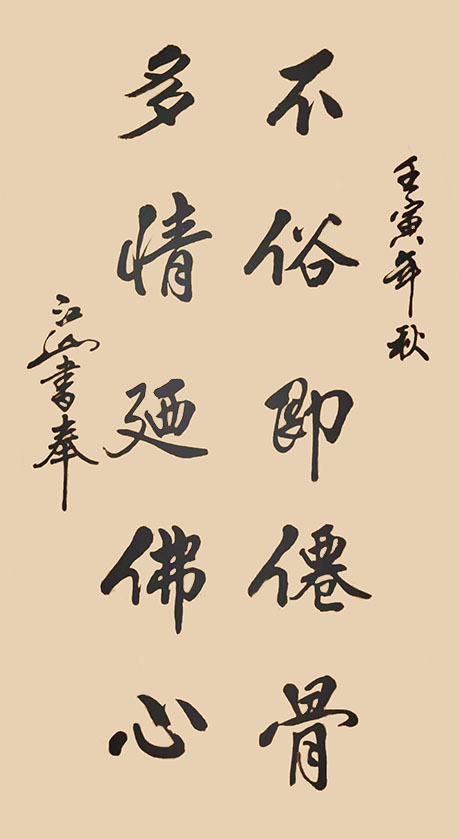 壬寅年秋
不俗即僊骨
多情廼佛心
江山書奉